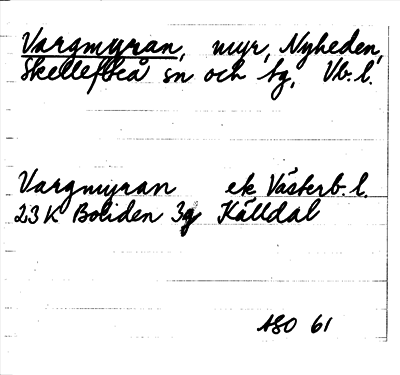 Vargmyran, myr, Nyheden,
Skellefteå sn och tg, Vb. l.
Vargmyran ek Västerb. l.
23 K Boliden 3g Källdal
ASO 61